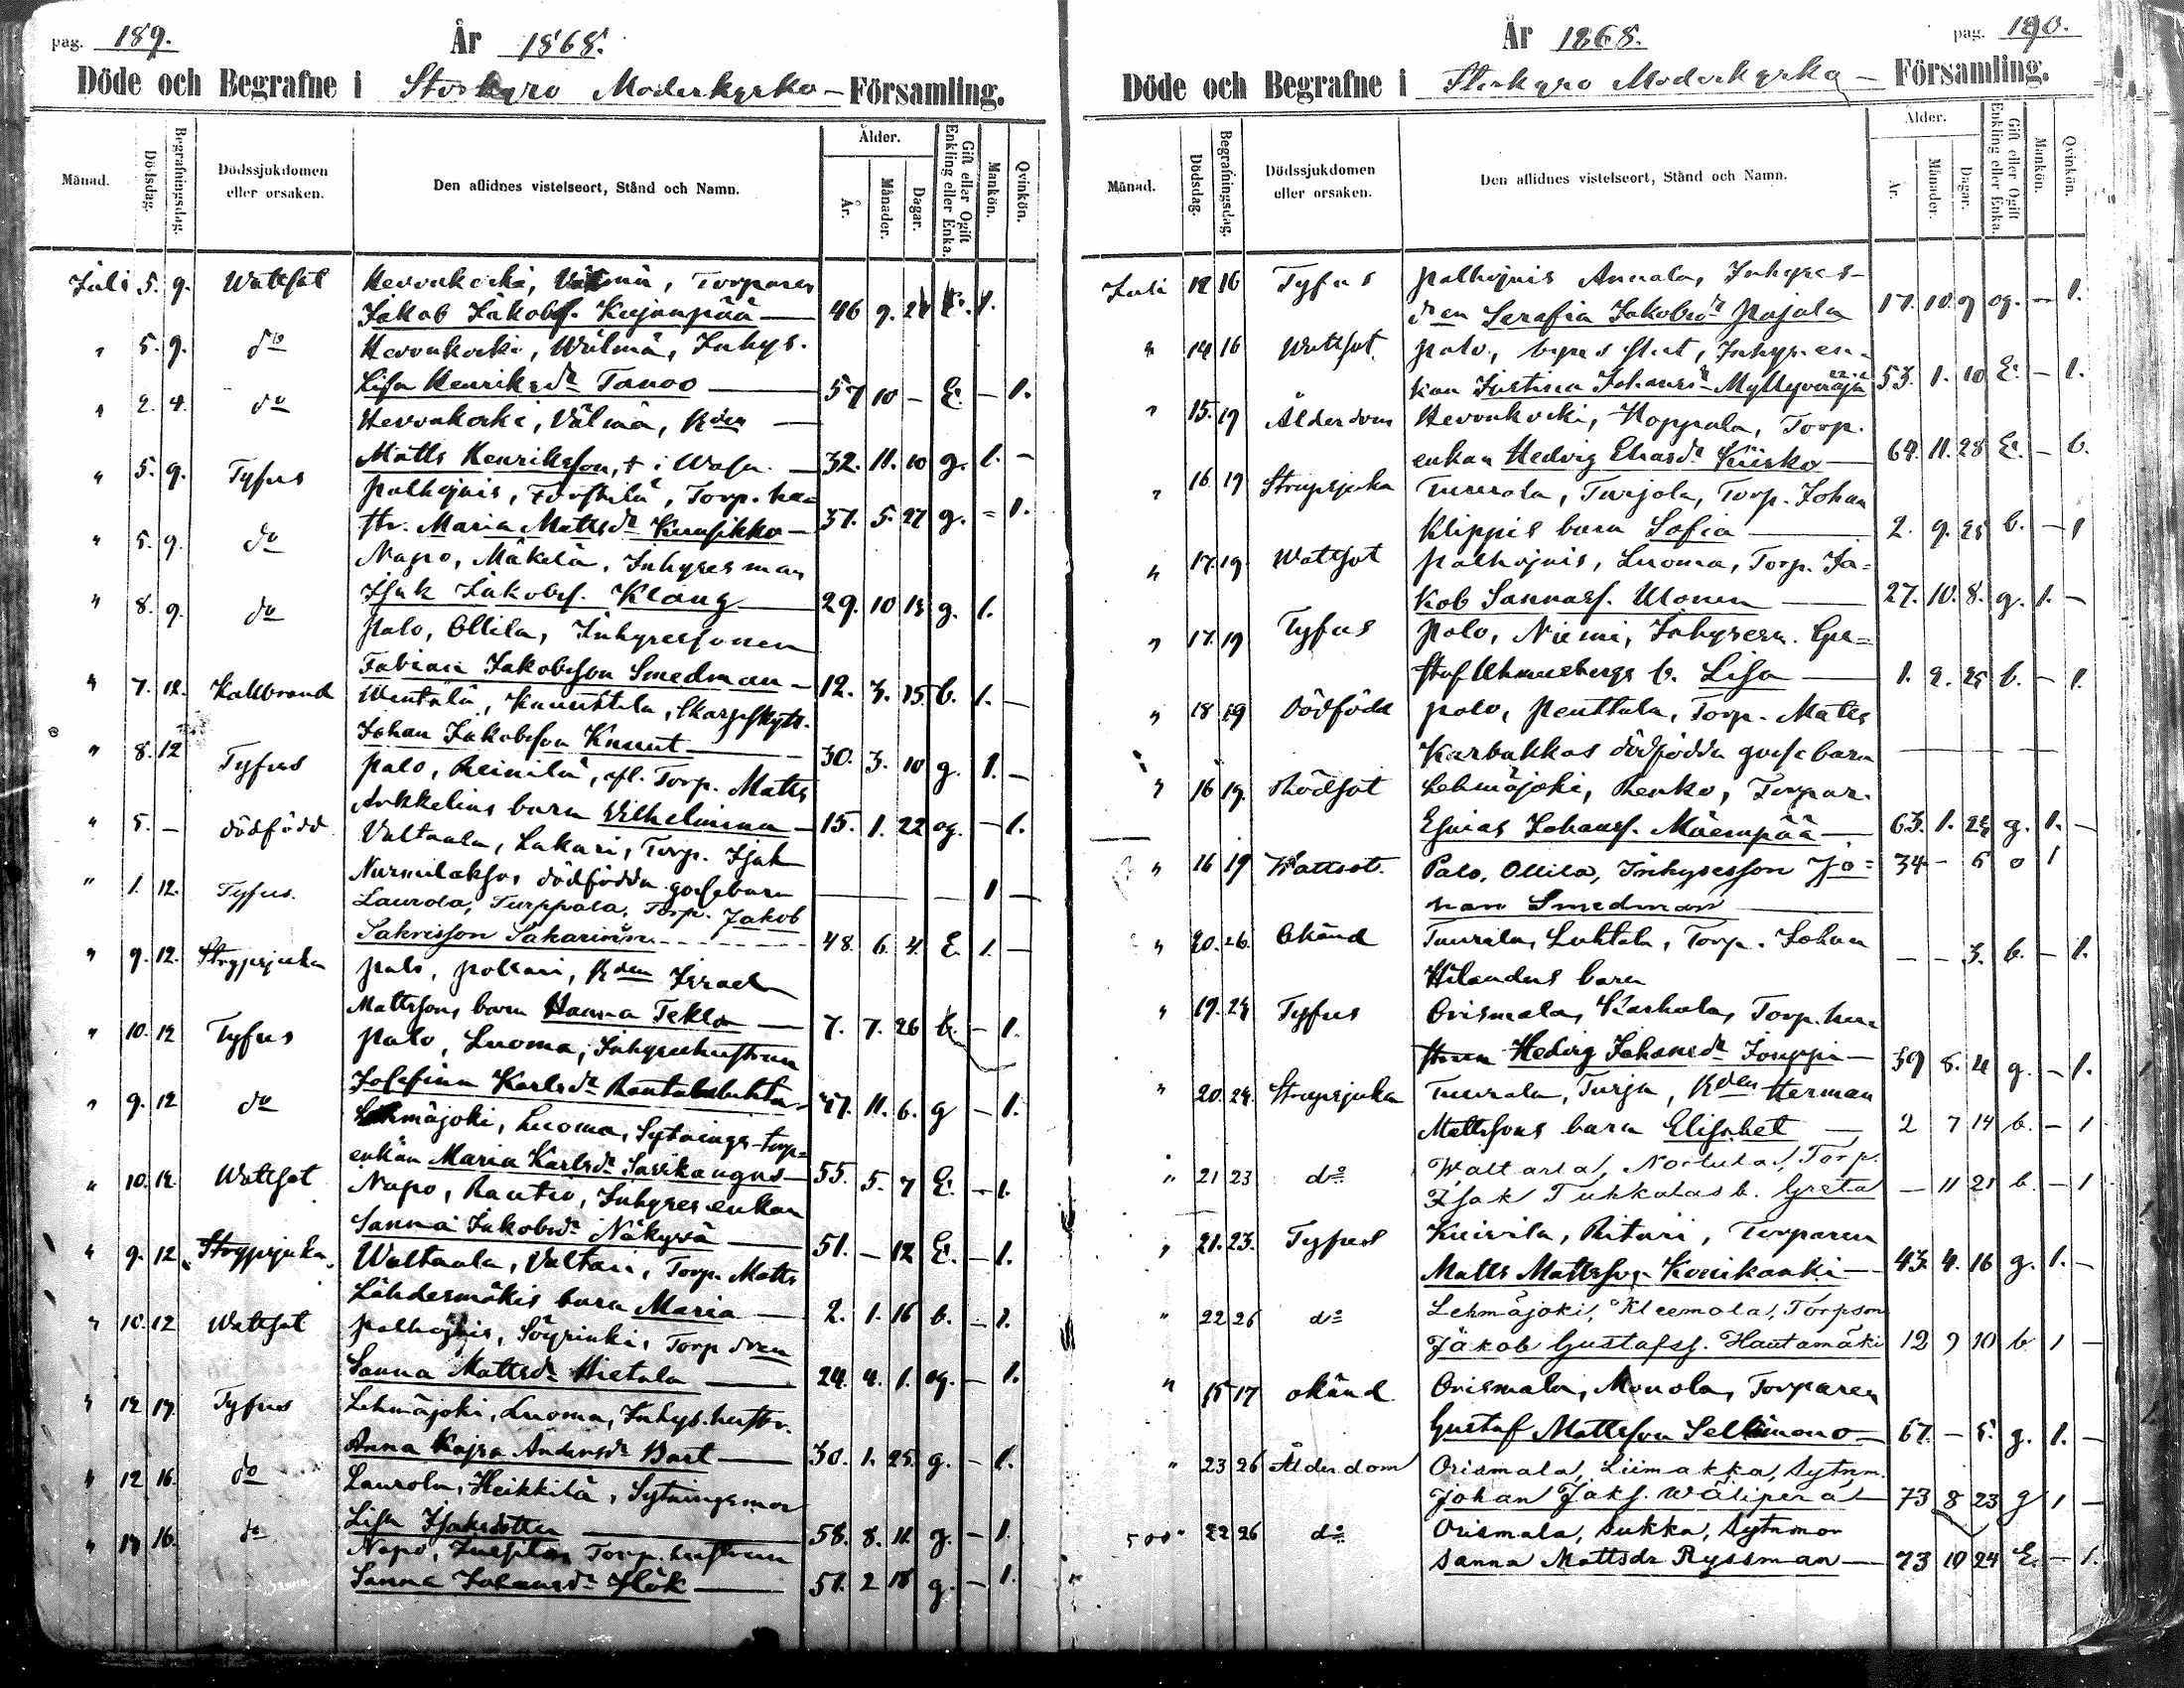 pag. 189.
År 1868.
Döde och Begrafne i Storkyro Moderkyrko- Församling.
Månad.
Dödsdag.
Begrafningsdag.
Dödssjukdomen eller orsaken.
Den aflidnes vistelseort, Stånd och Namn.
Ålder.
År.
Månader.
Dagar.
Gift eller Ogift Enkling eller Enka.
Mankön.
Qvinkön.
Juli 5. 9. Wattsot Hevonkoski, Välmä, Torparen
Jakob Jakobss. Kujanpää 46 9. 1.
" 5. 9. do Hevonkoski, Wälmä, Inhys.
Lisa Henriksdr Tanoo 57 10 - E. - 1.
" 2. 4. do Hevonkoski, Välmä, Rden
Matts Henriksson, † i Wasa. 32. 11. 10 g. 1. -
" 5. 9. Tyfus Palhojnis, Torp. hu=
str. Maria Mattsdr Kunsikko 37. 5. 27 g. - 1.
" 5. 9. do Napo, Mäkelä, Inhyresman
Isak Jakobss. Klang 29. 10 18 g. 1.
" 8. 9. do Palo, Ollila, Inhysessonen
Fabian Jakobsson Smedman 12. 3. 15. b. 1. -
" 7. 12. Kallbrand Wentälä, Knuuttila, Skarpskytt.
Johan Jakobsson Knuut 30. 3. 10 g. 1. -
" 8. 12 Tyfus Palo, Reinilä, afl. Torp. Matts
Arkkelins barn Vilhelmina 15. 1. 22 og. - 1.
" 5. - dödfödd Valtaala, Lakari, Torp. Isak
Nurmilaksos dödfödda gossebarn 1 -
" 1. 12. Tyfus. Laurola, Turppala, Torp. Jakob
Sakrisson Sakarinen 48. 6. 4. E. 1. -
" 9. 12. Strypsjuka Palo, Pollari, Rden Israel
Mattssons barn Hanna Tekla 7. 7. 26 b. - 1.
" 10. 12 Tyfus Palo, Luoma, Inhyseshustrun
Josefina Karlsdr 47. 11. 6. g - 1.
" 9. 12 do Lehmäjoki, Luoma, Sytnings-torp=
enkan Maria Karlsdr Savikangas 55. 5. 7 E. - 1.
" 10. 12. Wattsot Napo, Rautio, Inhyresenkan
Sanna Jakobsdr Näkyvä 51. - 12 E. - 1.
" 9. 12 Strypsjuka Waltaala, Valtari, Torp. Matts
Lähdesmäkis barn Maria 2. 1. 16 b. - 1.
" 10. 12 Wattsot Palhojnis, Söyrinki, Torp dren
Sanna Mattsdr Hietala 24. 4. 1. og. - 1.
" 12 17. Tyfus Lehmäjoki, Luoma, Inhys. hustr.
Anna Kajsa Andersdr Bart 30. 1. 25. g. - 1.
" 12 16. do Laurola, Heikkilä, Sytningsmor
Lisa Isaksdotter 58. 8. 11. g. - 1.
" 14 16. do Napo, Torp. hustrun
Sanna Johansdr Hök 51. 2 18 g. - 1.
År 1868.
pag. 190.
Döde och Begrafne i Storkyro Moderkyrko- Församling.
Månad.
Dödsdag.
Begrafningsdag.
Dödssjukdomen eller orsaken.
Den aflidnes vistelseort, Stånd och Namn.
Ålder.
År.
Månader.
Dagar.
Gift eller Ogift Enkling eller Enka.
Mankön.
Qvinkön.
Juli 12 16 Tyfus Palhojnis Annala, Inhyres-
dren Serafia Jakobsdr Pajula 17. 10. 9 og. - 1.
" 14 16 Wattsot. Palo, Inhyresen-
kan Justina Johansdr Myllyviäja 53. 1. 10 E. - 1.
" 15. 19 Ålderdom Hevonkoski, Hoppala, Torp.
enkan Hedvig Eliasdr Kiisko 64. 11. 28 E. - 1.
" 16 19 Strupsjuka Tuurala, Turjola, Torp. Johan
Klippis barn Sofia 2. 9. 25 b. - 1
" 17. 19. Wattsot Palhojnis, Luoma, Torp. Ja=
kob Sannass. Ulonen 27. 10. 8. g. 1. -
" 17. 19 Tyfus Palo, Niemi, Inhysesm. Gu=
staf b. Lisa 1. 2. 25 b. - 1.
" 18 19 Dödfödd Palo, Penttala, Torp. Matts
Karbakkas dödfödda gossebarn
" 16 19. Rödsot Lehmäjoki, Renko, Torpar.
Esaias Johanss. Mäenpää 63. 1. 25 g. 1. -
" 16 19 Wattsot. Palo, Ollila, Inhysesson Jo=
han Smedman 34 - 5 o 1
" 20. 26. Okänd Tuurala, Luhtala, Torp. Johan
Hilandus barn - - 3. b. - 1.
" 19. 24 Tyfus Orismala, Karhala, Torp. hu=
strun Hedvig Johansdr Jouppi 39 8. 4 g. - 1.
" 20. 24. Strupsjuka Tuurala, Turja, Rden Herman
Mattssons barn Elisabet 2 7 14 b. - 1
" 21 23 do Waltaala, Nortula, Torp.
Isak Tuhkalas b. Greta - 11 21 b. - 1
" 21. 23. Tyfus Kuivila, Ritari, Torparen
Matts Mattsson Kouikoski 43. 4. 16 g. 1. -
" 22 26 do Lehmäjoki, Kleemola, Torpson
Jakob Gustafss. Hautamäki 12 9 10 b 1 -
" 15 17 okänd Orismala, Monola, Torparen
Gustaf Mattsson 67. - 5. g. 1. -
" 23 26 Ålderdom Orismala, Liimakka, Sytnm.
Johan Jaks. Wäliperä 73 8 23 g 1 -
500 " 22 26 do Orismala, Sukka, Sytnmor
Sanna Mattsdr Ryssman 73 10 24 E. - 1.